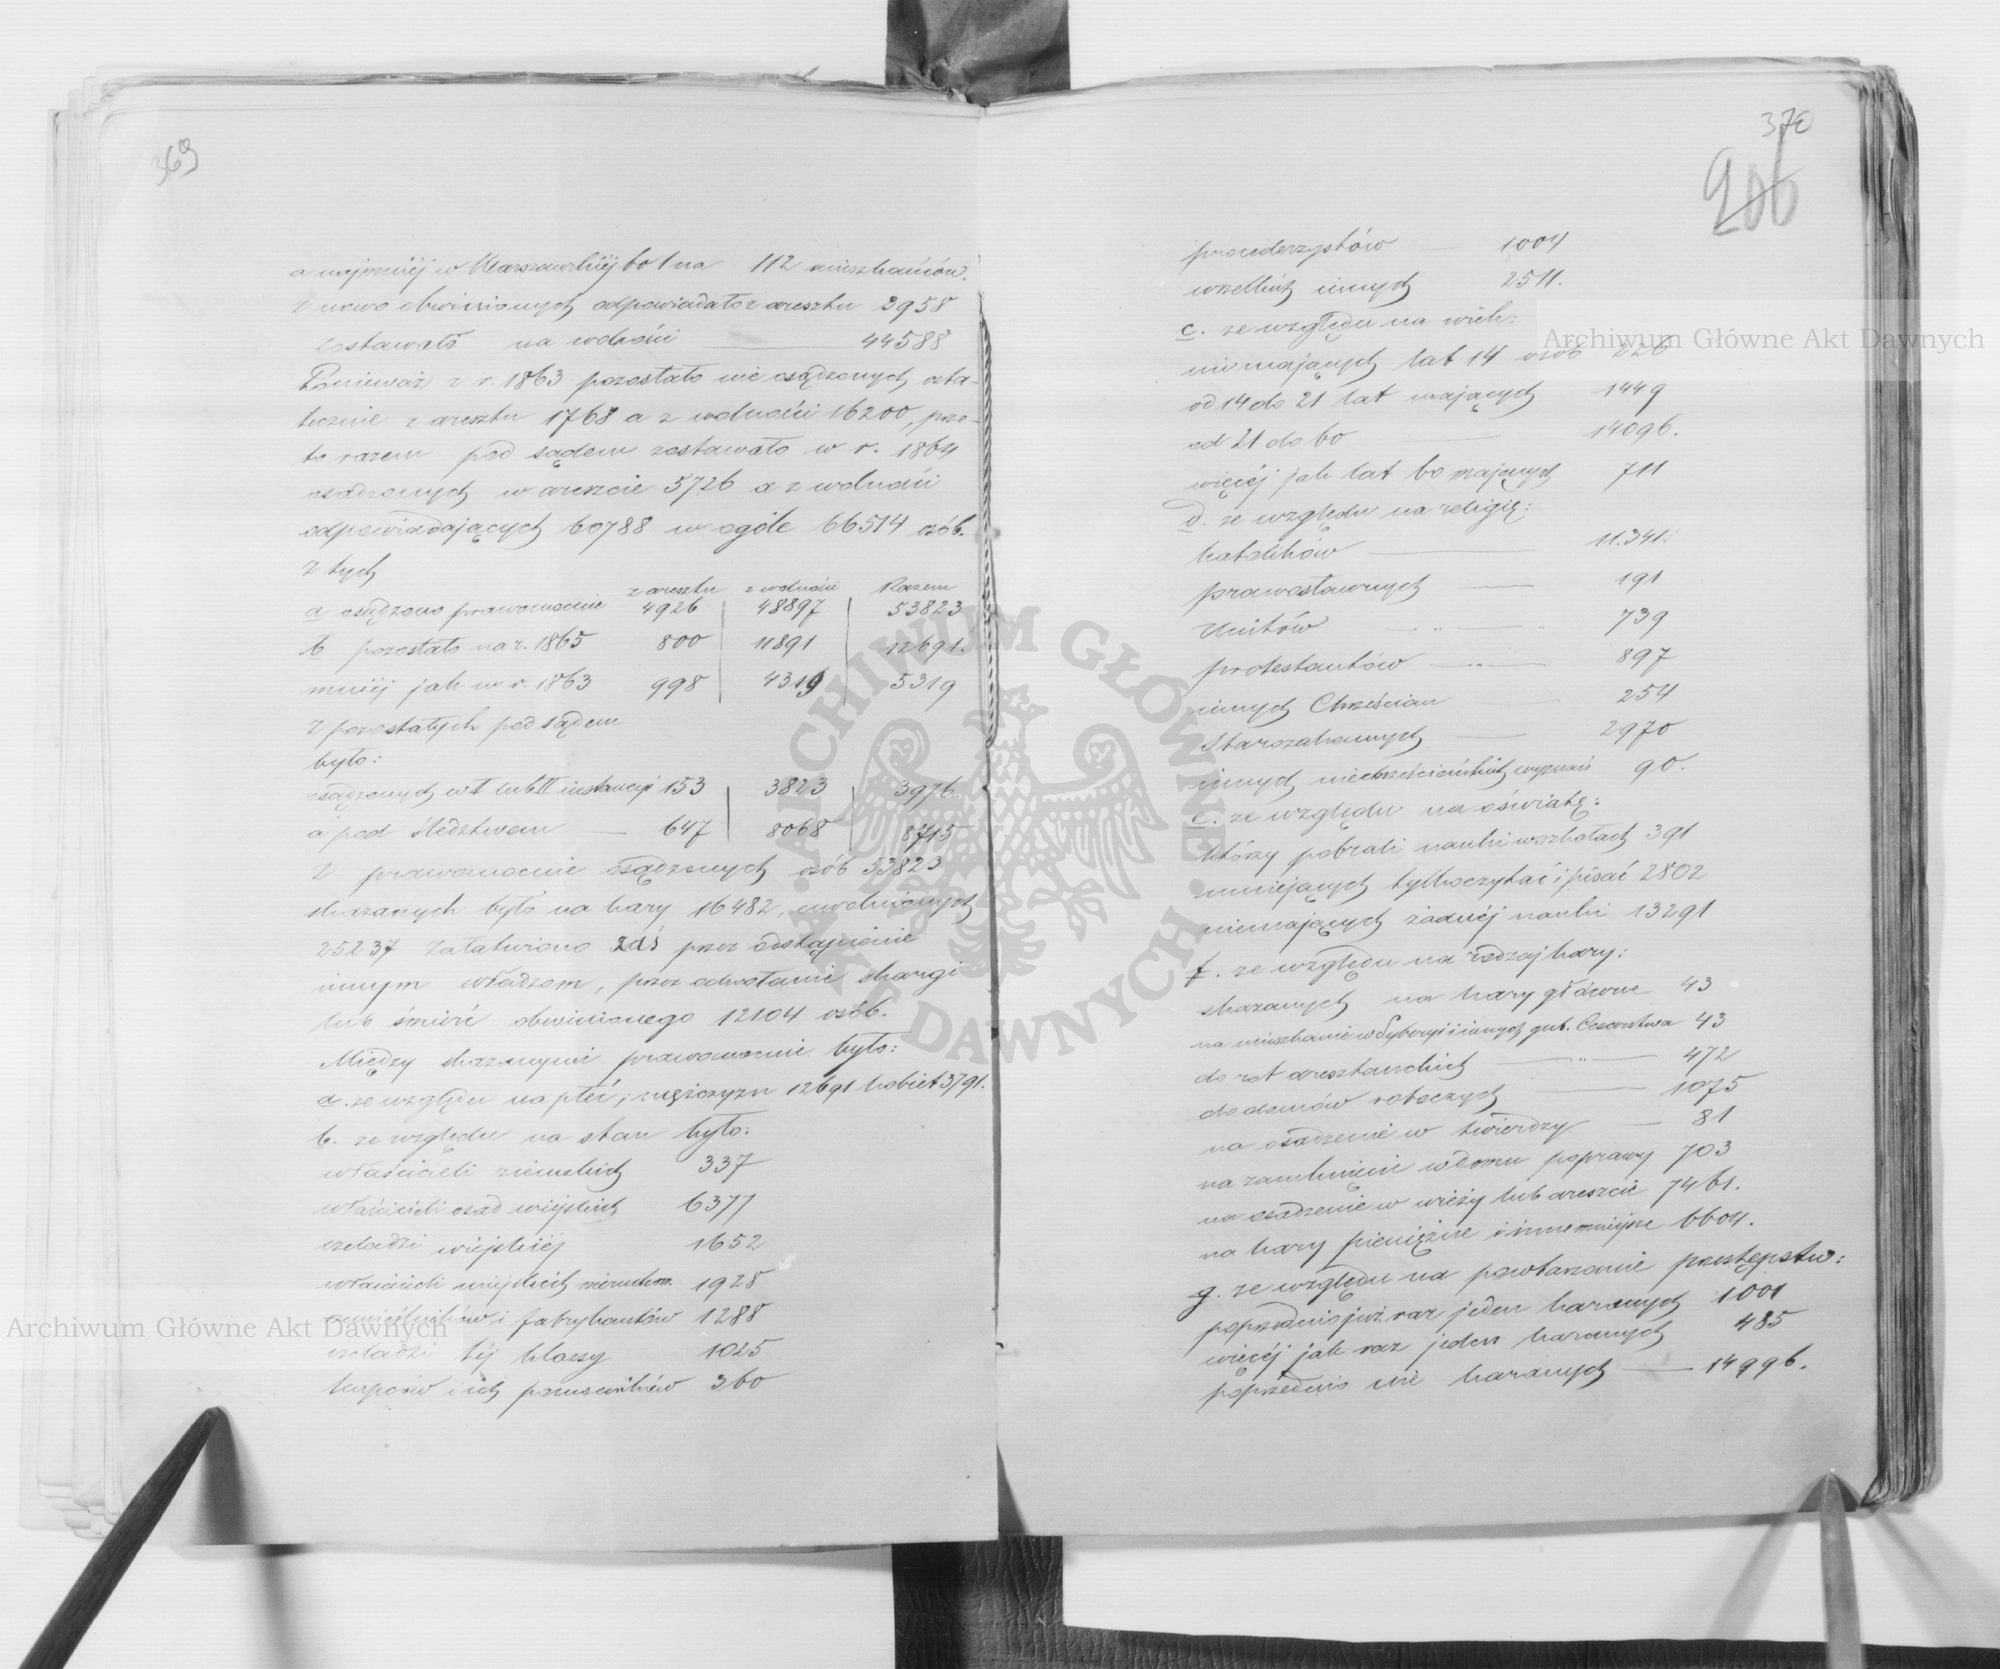 369
a najmniéj w Warszawskiéj bo 1 na 112 mieszkańców.
Z nowo obwinionych odpowiadało z aresztu 3958
zostawało na wolności 44588
Ponieważ z r. 1863 pozostało nie osądzonych osta-
tecznie z aresztu 1768 a z wolności 16200, prze-
to razem pod sądem zostawało w r. 1864
osadzonych w areszcie 5726 a z wolności
odpowiadających 60788 w ogóle 66514 osób.
Z tych
z aresztu z wolności Razem
a osądzono prawomocnie 4926 48897 53823
b pozostało na r. 1865 800 11891 12691.
mniéj jak w r. 1863 998 4319 5319
Z pozostałych pod sądem
było:
osądzonych w I lub II instancyi 153 3823 3976
a pod śledztwem 647 8068 8715
Z prawomocnie osądzonych osób 53823
skazanych było na kary 16482, uwolnionych
25237 Załatwiono zaś przez odstąpienie
innym władzom, przez odwołanie skargi
lub śmierć obwinionego 12104 osób.
Między skazanymi prawomocnie było:
a. ze względu na płeć, mężczyzn 12691 kobiet 3791.
b. ze względu na stan było:
właścicieli ziemskich 337
właścicieli osad wiejskich 6377
czeladzi wiejskiéj 1652
właścicieli miejskich nieruchom. 1928
rzemieślników i fabrykantów 1288
czeladzi téj klassy 1025
kupców i ich pomocników 360
370
206
procederzystów 1004
wszelkich innych 2511.
c. ze względu na wiek:
nie mających lat 14 osób 226
od 14 do 21 lat mających 1449
od 21 do 60 14096.
więcéj jak lat 60 mających 711
d. ze względu na religię:
katolików 11.341.
prawosławnych 191
Unitów 739
protestantów 897
innych Chrześcian 254
Starozakonnych 2970
innych niechrześciańskich wyznań 90.
e. ze względu na oświatę:
którzy pobrali nauki w szkołach 391
umiejących tylko czytać i pisać 2802
niemających żadnéj nauki 13291
f. ze względu na rodzaj kary:
skazanych na kary główne 43
na mieszkanie w Syberyi i innych gub. Cesarstwa 43
do rot aresztanckich 472
do domów roboczych 1075
na osadzenie w twierdzy 81
na zamknięcie w domu poprawy 703
na osadzenie w wieży lub areszcie 7461.
na kary pieniężne i inne mniejsze 6604.
g. ze względu na powtarzanie przestępstw:
poprzednio już raz jeden karanych 1001
więcéj jak raz jeden karanych 485
poprzednio nie karanych 14996.
Archiwum Główne Akt Dawnych
Archiwum Główne Akt Dawnych
ARCHIWUM GŁÓWNE AKT DAWNYCH